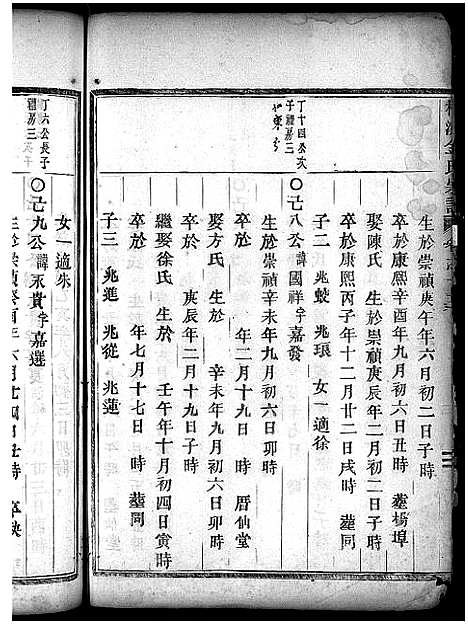 生於崇禎庚午年六月初二日子時
卒於康熙辛酉年九月初六日丑時 塟楊埠
娶陳氏 生於崇禎庚辰年二月初二日子時
卒於康熙丙子年十二月廿二日戌時 塟同
子二 兆蛟 兆琅 女一適徐
丁十四公次子禮易三
〇己八公諱國祥字嘉發
生於崇禎辛未年九月初六日卯時
卒於 年二月十九日 時 厝仙堂
娶方氏 生於 辛未年九月初六日卯時
卒於 庚辰年二月十九日子時
繼娶徐氏 生於 壬午年十月初四日寅時
卒於 年七月十七日 時 塟同
子三 兆進 兆從 兆蓮
女一適朱
丁六公長子禮易三
〇己九公諱永貴字嘉選
生於崇禎癸酉年六月十四日丑時 卒缺